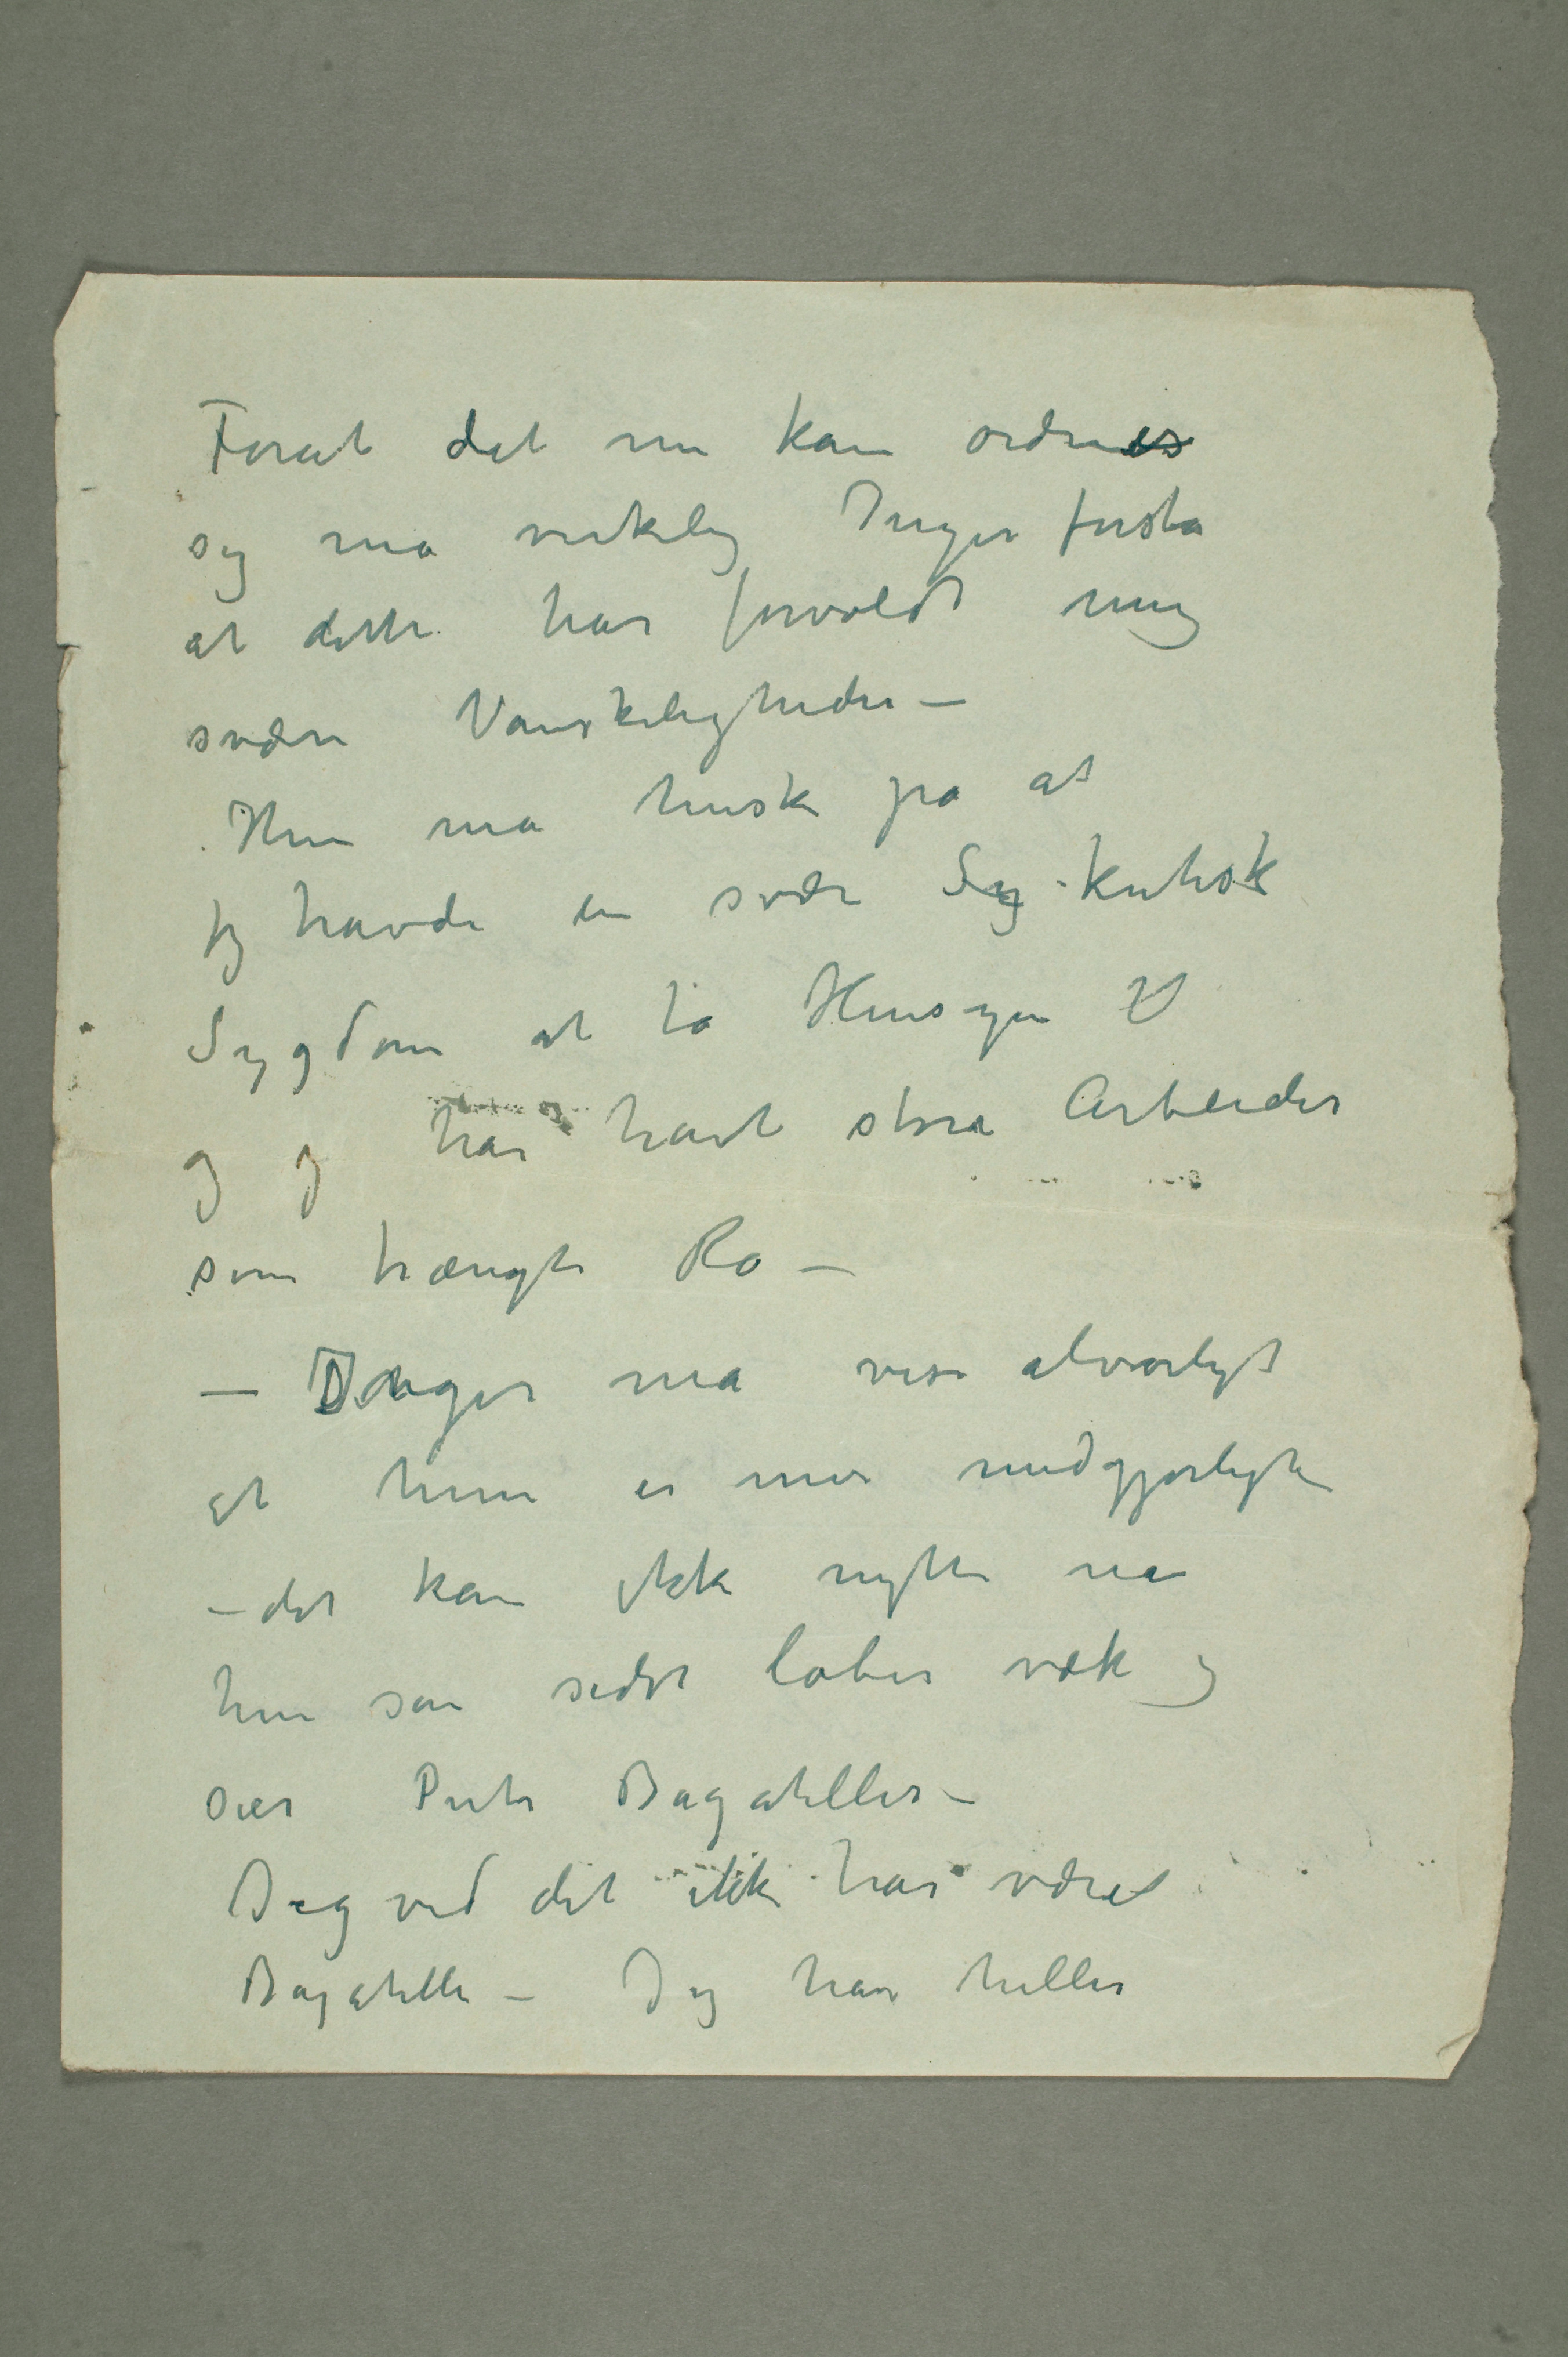 Forat det nu kan ordnes
sig må virkelig Inger forstå
at dette har forvoldt mig
svære Vanskeligheder –
Hun må huske på at
jeg havde en svær Sy kritisk
Sygdom at ta Hensyn til
og jeg har havt store Arbeider
som trængte Ro –
– Inger må vise alvorligt
at hun er mer medgjørlighe
– det kan ikke nytte når
hun som sidst løber væk og
sier Putr Bagateller –
Jeg ved det ikke har været
Bagatelle – Jeg har heller